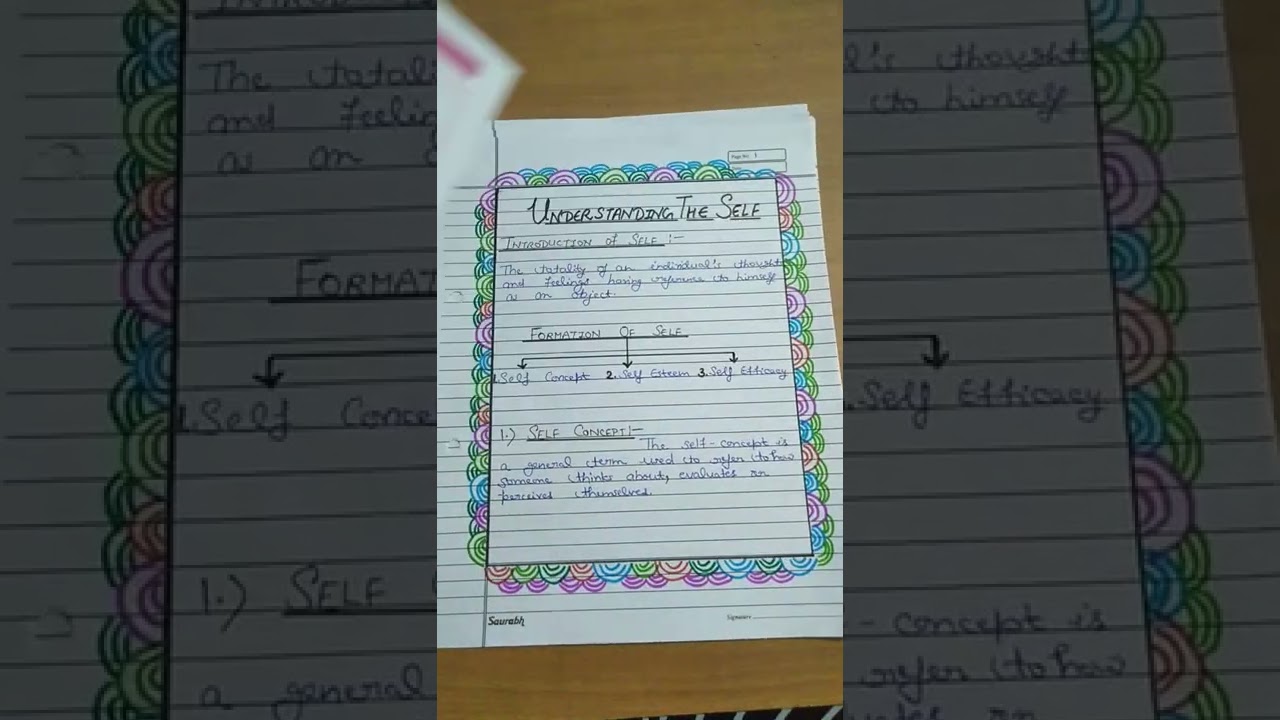 Page No. 1
UNDERSTANDING THE SELF
INTRODUCTION of SELF :-
The totality of an individual's thought
and feelings having reference to himself
as an object.
FORMATION OF SELF
1. Self Concept 2. Self Esteem 3. Self Efficacy
1.) SELF CONCEPT:-
The self-concept is
a general term used to refer to how
someone thinks about, evaluates or
perceives themselves.
Saurabh
Signature